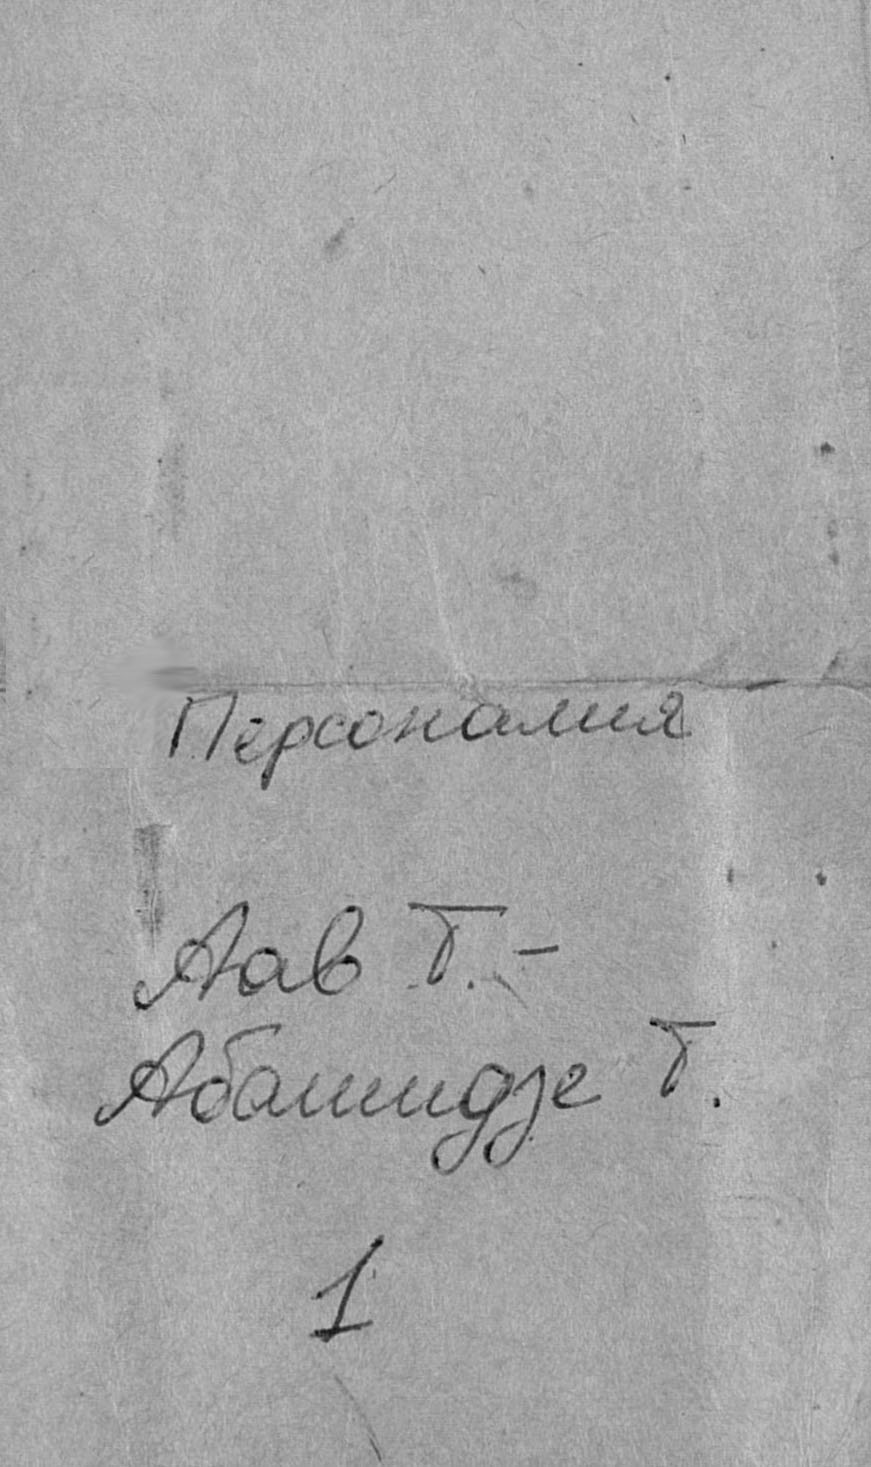 Персоналия
Аав Т. -
Абашидзе Т.
1